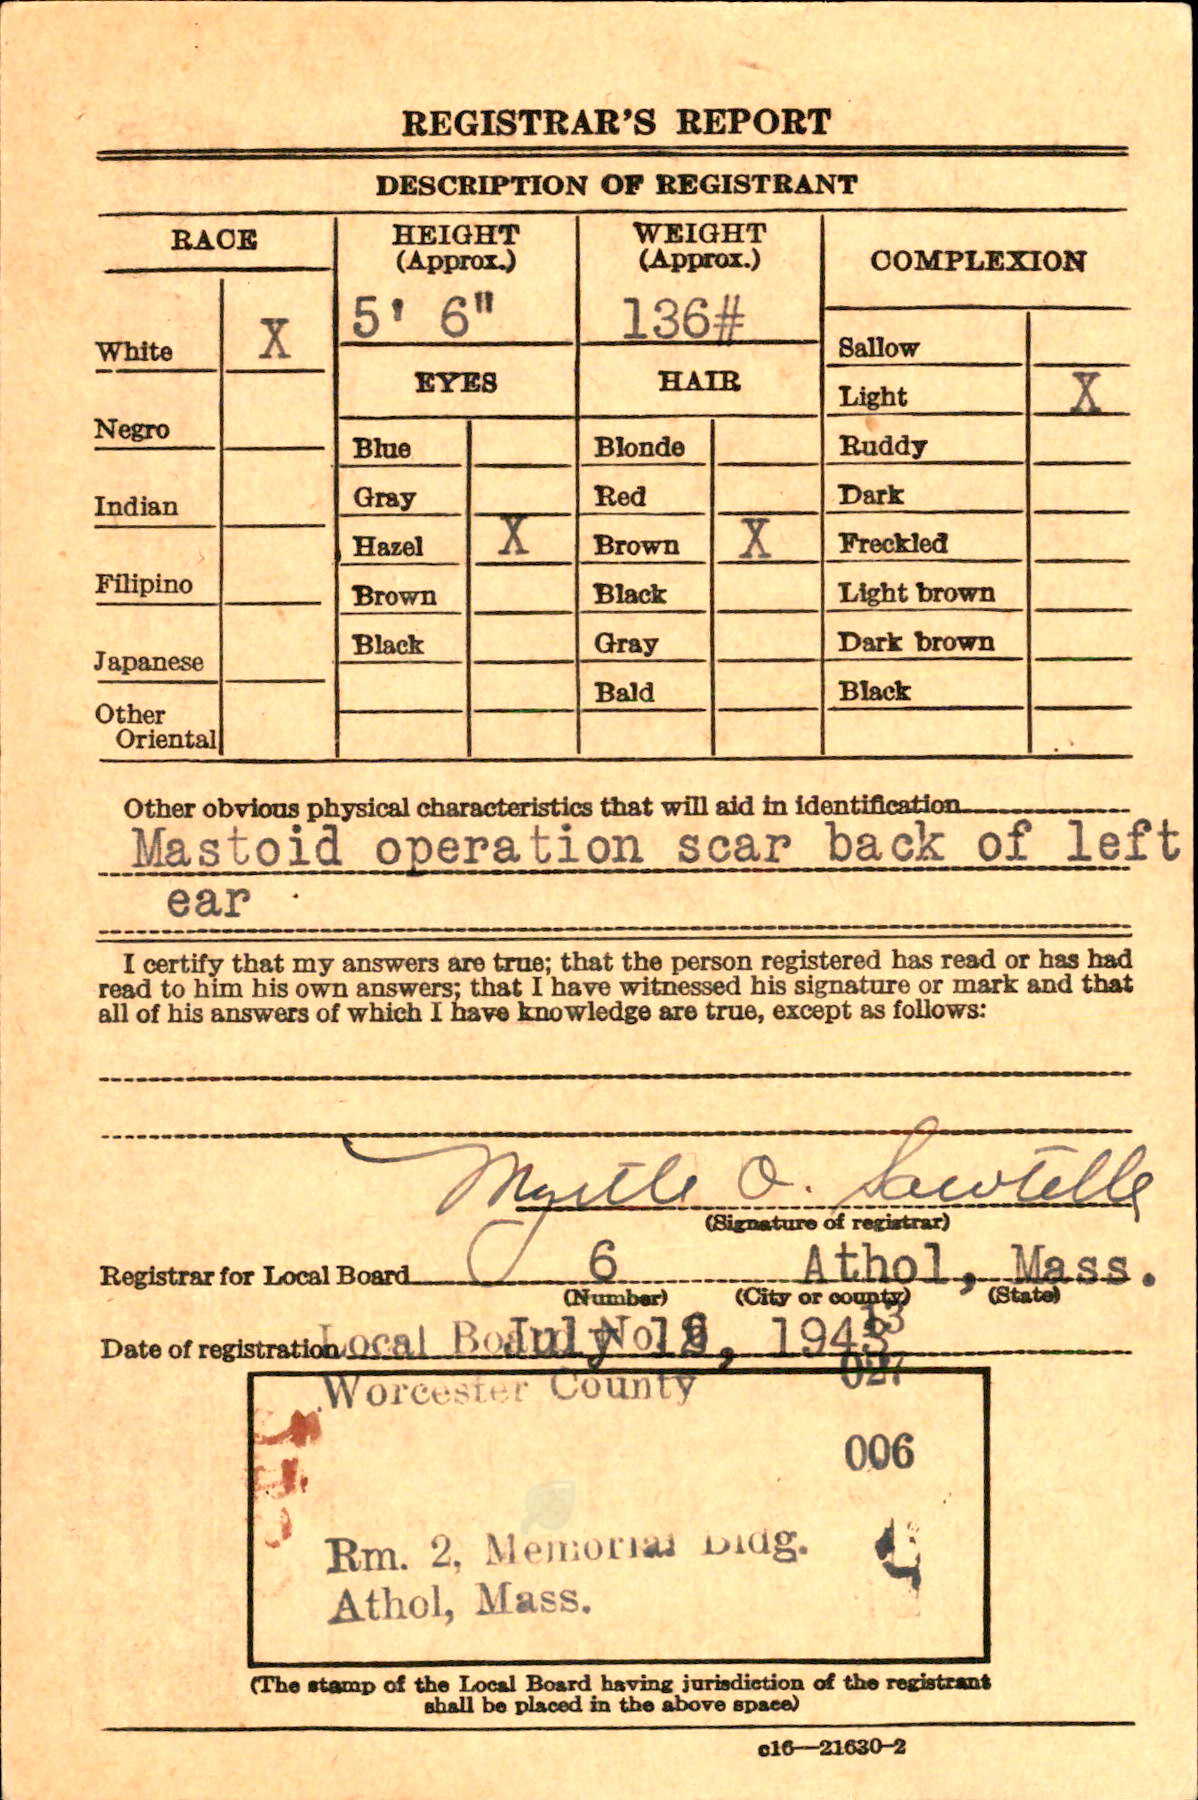 REGISTRAR'S REPORT
DESCRIPTION OF REGISTRANT
RACE
White X
Negro
Indian
Filipino
Japanese
Other
Oriental
HEIGHT
(Approx.)
5' 6"
WEIGHT
(Approx.)
136#
EYES
Blue
Gray
Hazel X
Brown
Black
HAIR
Blonde
Red
Brown X
Black
Gray
Bald
COMPLEXION
Sallow
Light X
Ruddy
Dark
Freckled
Light brown
Dark brown
Black
Other obvious physical characteristics that will aid in identification
Mastoid operation scar back of left
ear
I certify that my answers are true; that the person registered has read or has had
read to him his own answers; that I have witnessed his signature or mark and that
all of his answers of which I have knowledge are true, except as follows:
Myrtle O. Sawtelle
(Signature of registrar)
Registrar for Local Board 6 Athol, Mass.
(Number) (City or county) (State)
Date of registration July
Local Board No. 13
Worcester County 027
006
Rm. 2, Memorial Bldg.
Athol, Mass.
(The stamp of the Local Board having jurisdiction of the registrant
shall be placed in the above space)
c16—21630-2